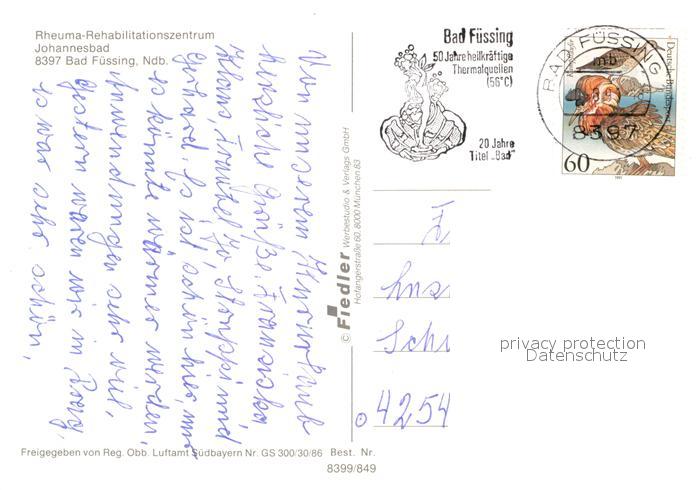 Rheuma-Rehabilitationszentrum
Johannesbad
8397 Bad Füssing, Ndb.
Bad Füssing
50 Jahre heilkräftige
Thermalquellen
(56°C)
20 Jahre
Titel „Bad"
BAD FÜSSING
mb
8397
Deutsche Bundespost
60
Von unserem
herzliche Grüße.
und
Gerhard. Es ist schön hier, nur
es könnte wärmer werden,
Anwendungen sehr viel,
gestern waren wir in
es war sehr schön,
© Fiedler Werbestudio & Verlags GmbH
Hofangerstraße 60, 8000 München 83
Schi
4254
privacy protection
Datenschutz
Freigegeben von Reg. Obb. Luftamt Südbayern Nr. GS 300/30/86 Best. Nr.
8399/849